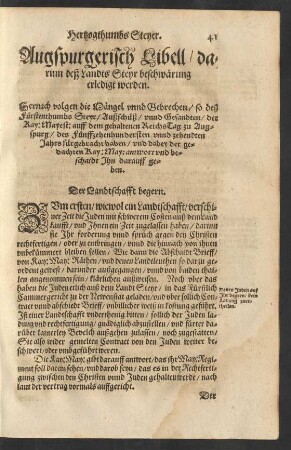 Hertzogthumbs Steyer. 41
Augspurgerisch Libell / da-
rum deß Landts Steyr beschwärung
erledigt werden.
Hernach volgen die Mängel vnnd Gebrechen / so deß
Fürstenthumbs Steyr / Außschüß / vnnd Gesandten / der
Kay: Mayest: auff dem gehaltenen Reichs Tag zu Aug-
spurg / des Fünffzehenhundersten vnnd zehendten
Jahrs fürgebracht haben / vnd daher der ge-
dachten Kay: May: antwort vnd be-
schaidt Ihn darauff ge-
ben.
Der Landtschafft begern.
ZVm ersten / wiewol ein Landtschafft / verschi-
ner Zeit die Juden mit schwerem Costen auß dem Land
kaufft / vnd Ihnen ein Zeit zugelassen haben / darinn
sie Ihr forderung vnnd sprüch gegen den Christen
rechtfertigen / oder zu endtringen / vnnd die hinnach von ihnen
vnbekümmert bleiben sollen / Wie dann die Abschiedt Brieff /
von Kay: May: Räthen / vnd denen Landtleuten so dar zu ge-
ordent gewest / darunder außgegangen / vnnd von baiden thai-
len angenommen sein / klärlichen außweisen. Noch vber das
haben die Juden erlich auß dem Land Steyr / in das Fürstlich
Cammergericht zu der Newenstat geladen / vnd vber sollich Con-
tract vnnd abschiedt Brieff / vnbillicher weiß in Rechtung geführet.
Ist einer Landtschafft vnderthenig bitten / sollich der Juden la-
dung vnd rechtfertigung / gnädigklich abzustellen / vnd fürter dar-
über kainerley Bevelch außgehen zulassen / noch zugestatten /
Sie also wider gemelten Contract von den Juden weiter be-
schwert / oder vmbgeführt weren.
Die Kay: May: gibt darauff antwort / das ihr May: Regi-
ment soll darein sehen / vnd darob seyn / das es in der Rechtferti-
gung zwischen den Christen vnnd Juden gehalten werde / nach
laut der vertrag vormals auffgericht.
Der